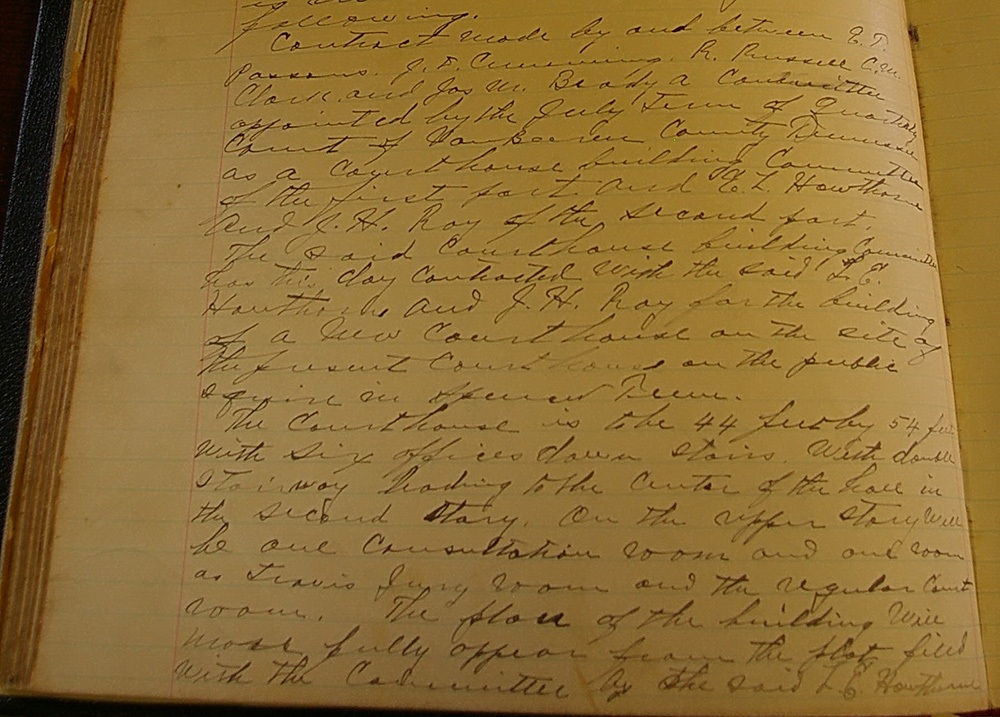 following.
Contract made by and between E. T.
Passons. J. D. Cummings. R. Russell C. M.
Clark. and Jas M. Brady a Committee
appointed by the July Term of Quarterly
Court of VanBuren County Tennessee
as a Courthouse building Committee
of the first part. And L. Hawthorne
And J. H. Roy of the second part.
The said Courthouse building Committee
has this day contracted With the said L. E.
Howthorne and J. H. Roy for the building
of a New Court house on the site of
the present Court house on the public
square in Spencer Tenn.
The Courthouse is to be 44 feet by 54 feet
With Six offices down stairs. With double
Stairway leading to the Center of the hall in
the second story. On the upper story Will
be one Consultation room and one room
as Jury room and the regular Court
room. The plan of the building Will
more fully appear from the plat filed
With the Committee by the said L. E. Hawthorne